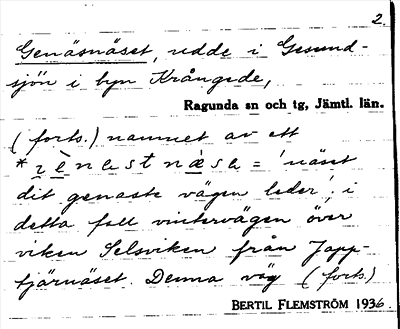 2.
Genäsnäset, udde i Gesund-
sjön i byn Krångede,
Ragunda sn och tg, Jämtl. län.
(forts.) namnet av ett
= 'näset
dit genaste vägen leder', i
detta fall vintervägen över
viken Selsviken från Japp-
tjärnäset. Denna väg (forts.)
BERTIL FLEMSTRÖM 1936.